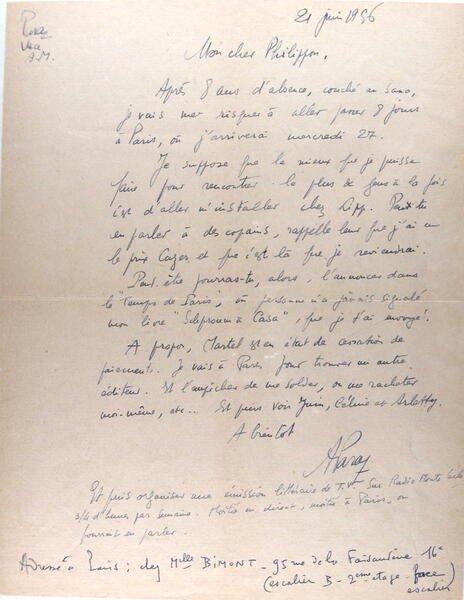 Paraz
A.M.
21 juin 1956
Mon cher Philippon,
Après 8 ans d'absence, couché au sana,
je vais me risquer à aller passer 8 jours
à Paris, où j'arriverai mercredi 27.
Je suppose que le mieux que je puisse
faire pour rencontrer le plus de gens à la fois
c'est d'aller m'installer chez Lipp. Peux-tu
en parler à des copains, rappelle leur que j'ai eu
le prix Cazes et que c'est là que je reviendrai.
Peut-être pourras-tu, alors, l'annoncer dans
le "Temps de Paris", où personne n'a jamais signalé
mon livre "Schproum à Casa", que je t'ai envoyé!
A propos, Martel est en état de cessation de
paiements. Je vais à Paris pour trouver un autre
éditeur. Et l'empêcher de me solder, ou me racheter
moi-même, etc... Et puis voir Juin, Céline et Arletty.
A bientôt
AParaz
Et puis organiser une émission littéraire de T.V. sur Radio Monte Carlo
3/4 d'heure par semaine. Moitié en direct, moitié à Paris, on
pourrait en parler.
Adresse à Paris : chez Melle BIMONT - 95 rue de la Faisanderie 16e
(escalier B - 2eme étage - face
escalier